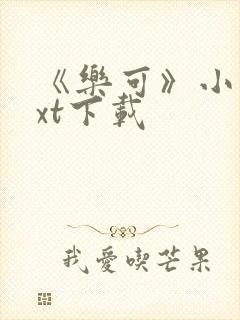 《樂可》小
xt下載
我愛喫芒果